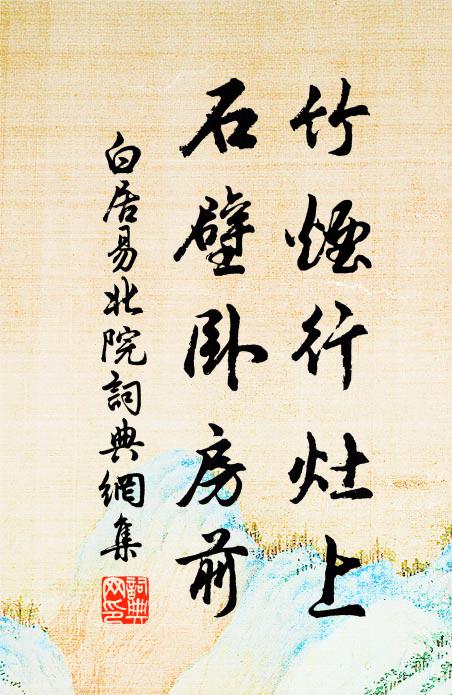 竹煙行灶上
石壁臥房前
白居易北院詞典網集
詞典網印